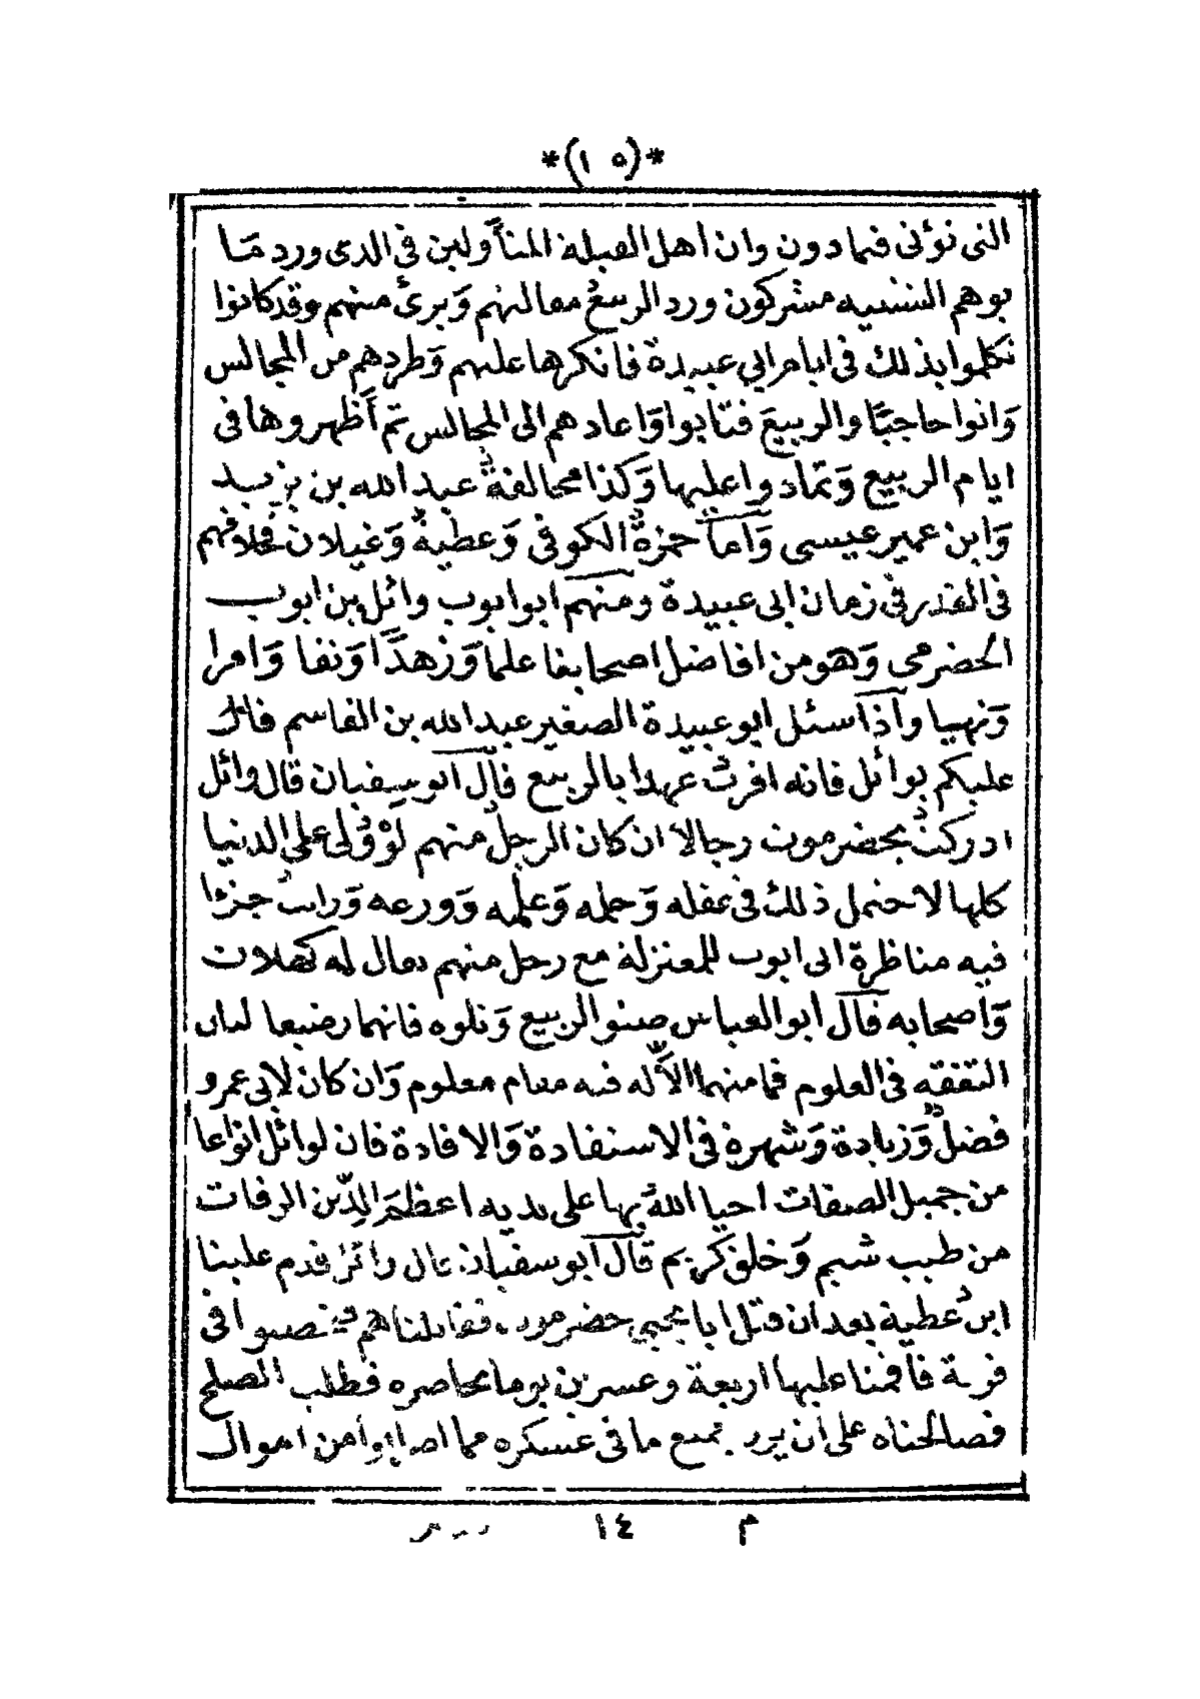 *(١٠٥)*
التى تؤتى فيما دون وان اهل القبلة المتأولين فى الذى ورد مما
يوهم التشبيه مشركون ورد الربيع مقالتهم وَبرئ منهم وقد كانوا
تكلموا بذلك فى ايام ابي عبيدة فانكرها عليهم وَطردهم من المجالس
وَاتوا حاجبًا والربيعَ فتابوا وَاعادهم الى المجالس ثم أظهروها فى
ايام الربيع وَتمادوا عليها وَكذا مخالفةُ عبد الله بن يزيد
وَابن عمير عيسى وَأما حمزةُ الكوفى وَعطيةُ وَغيلان فخلافهم
فى القدر فى زمان ابى عبيدة ومنهم ابو ايوب وائل بن ايوب
الحضرمى وَهو من افاضل اصحابنا علما وَزهدًا وَتقا وَامرا
وَنهيا وإذا سئل ابو عبيدة الصغير عبد الله بن القاسم قال
عليكم بوائل فانه اقربُ عهدا بالربيع قال ابو سفيان قال وائل
ادركتُ بحضرموت رجالا ان كان الرجلُ منهم لَوْ وُلى على الدنيا
كلها لاحتمل ذلك فى عقله وَحلمه وَعلمه وَورعه وَرايتُ جزءًا
فيه مناظرة ابى ايوب للمعتزلة مع رجل منهم يقال له كهلان
وَاصحابه قال ابو العباس صنو الربيع وَتلوه فانهما رضيعا لبان
التفقه فى العلوم فما منهما الاّ له فيه مقام معلوم وَان كان لابى عمرو
فضلٌ وَزيادة وَشهرة فى الاستفادة وَالافادة فان لوائل انواعا
من جميل الصفات احيا اللهُ بها على يديه اعظمَ الدِّين الرفات
من طيب شيم وَخلق كريم قال ابو سفيان قال وائل قدم علينا
ابن عطية بعد ان قتل ابا يحيى بحضرموت فقاتلناهم فتحصنوا فى
قرية فأقمنا عليها اربعة وعشرين يوما نحاصره فطلب الصلح
فصالحناه على أن يرد جميع ما فى عسكره مما اصابوا من اموال
م ١٤